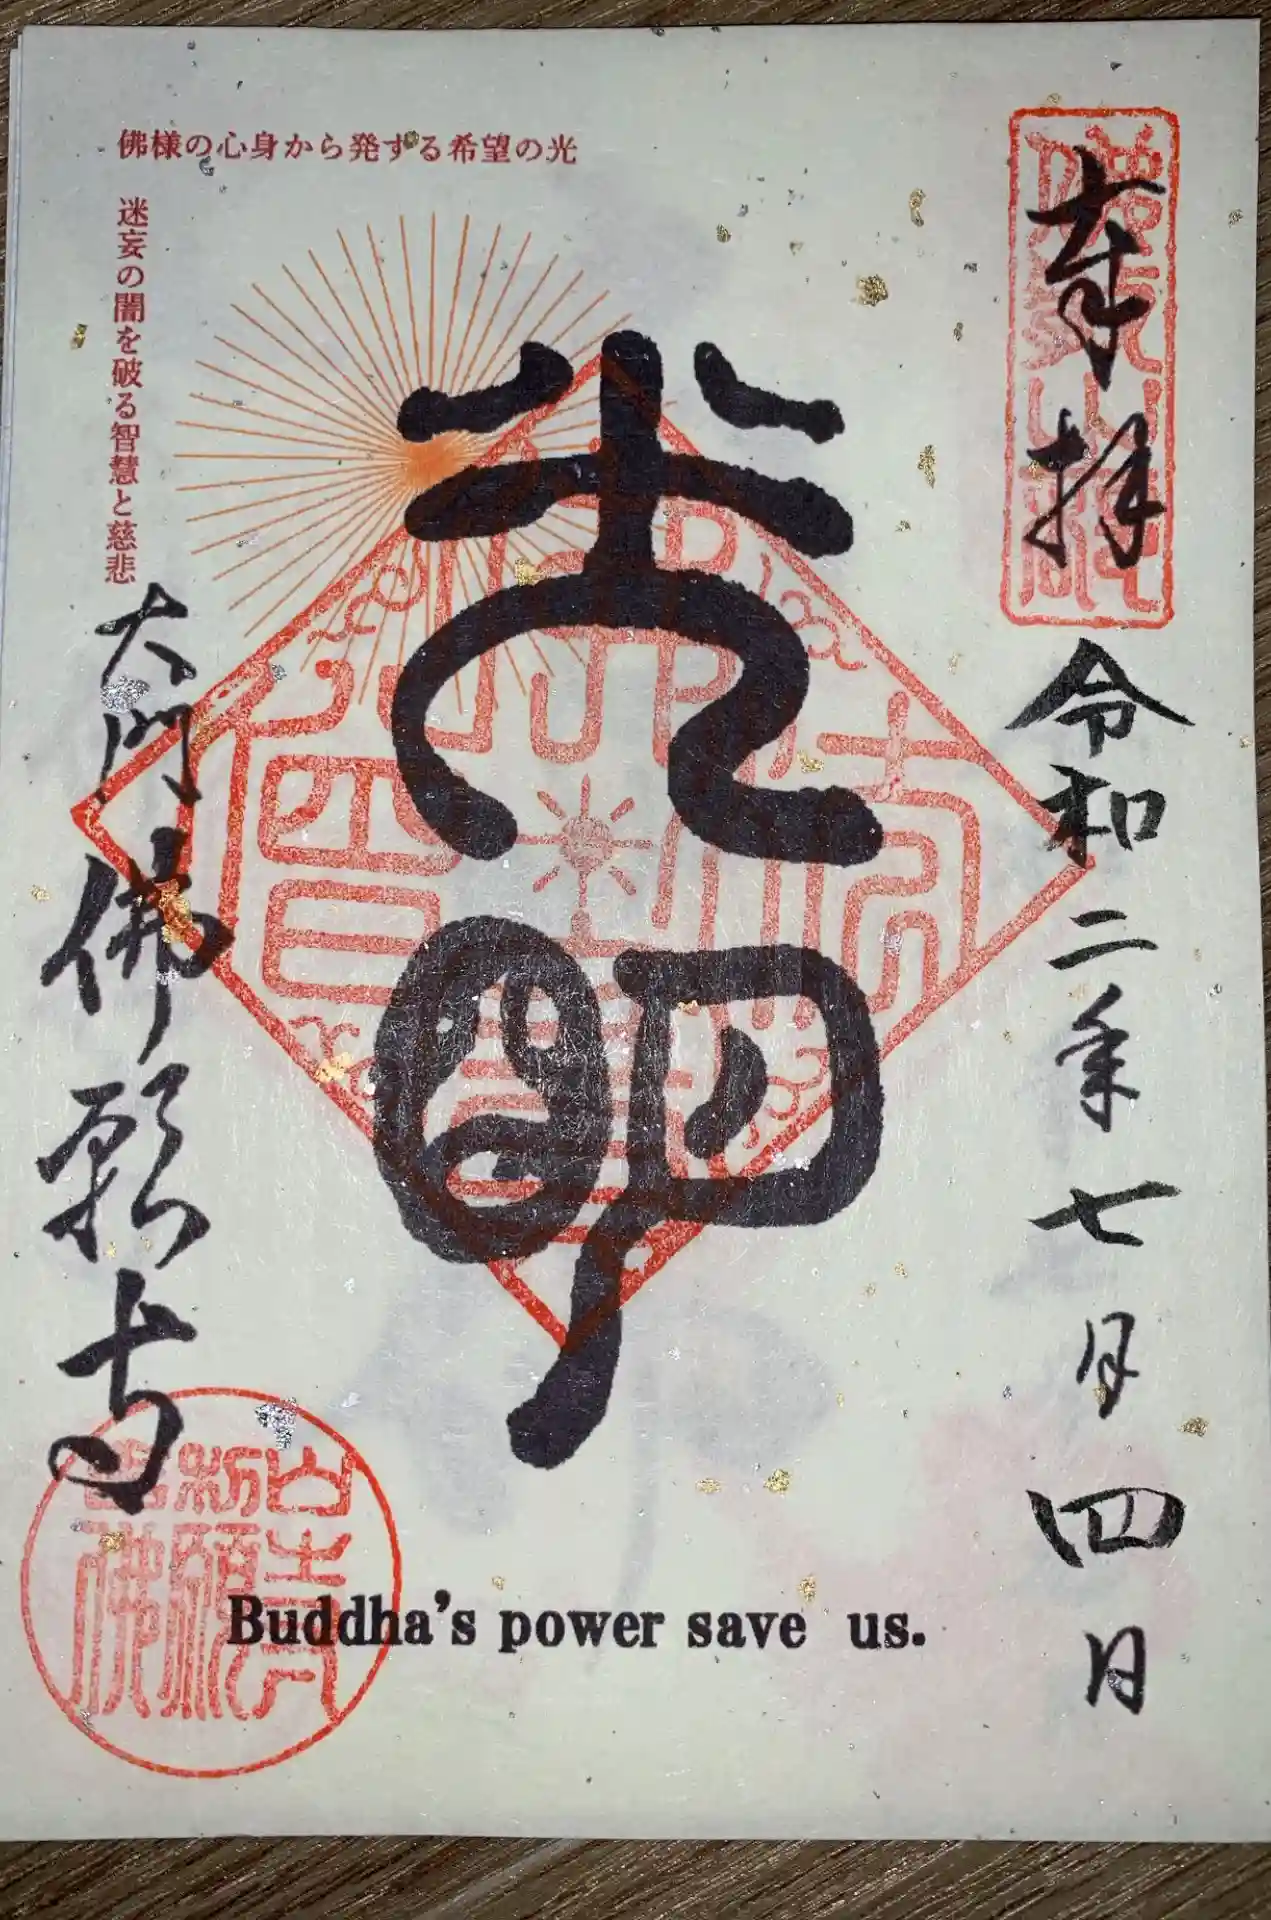 奉拝
令和二年七月四日
佛様の心身から発する希望の光
迷妄の闇を破る智慧と慈悲
光明
大門佛願寺
Buddha's power save us.